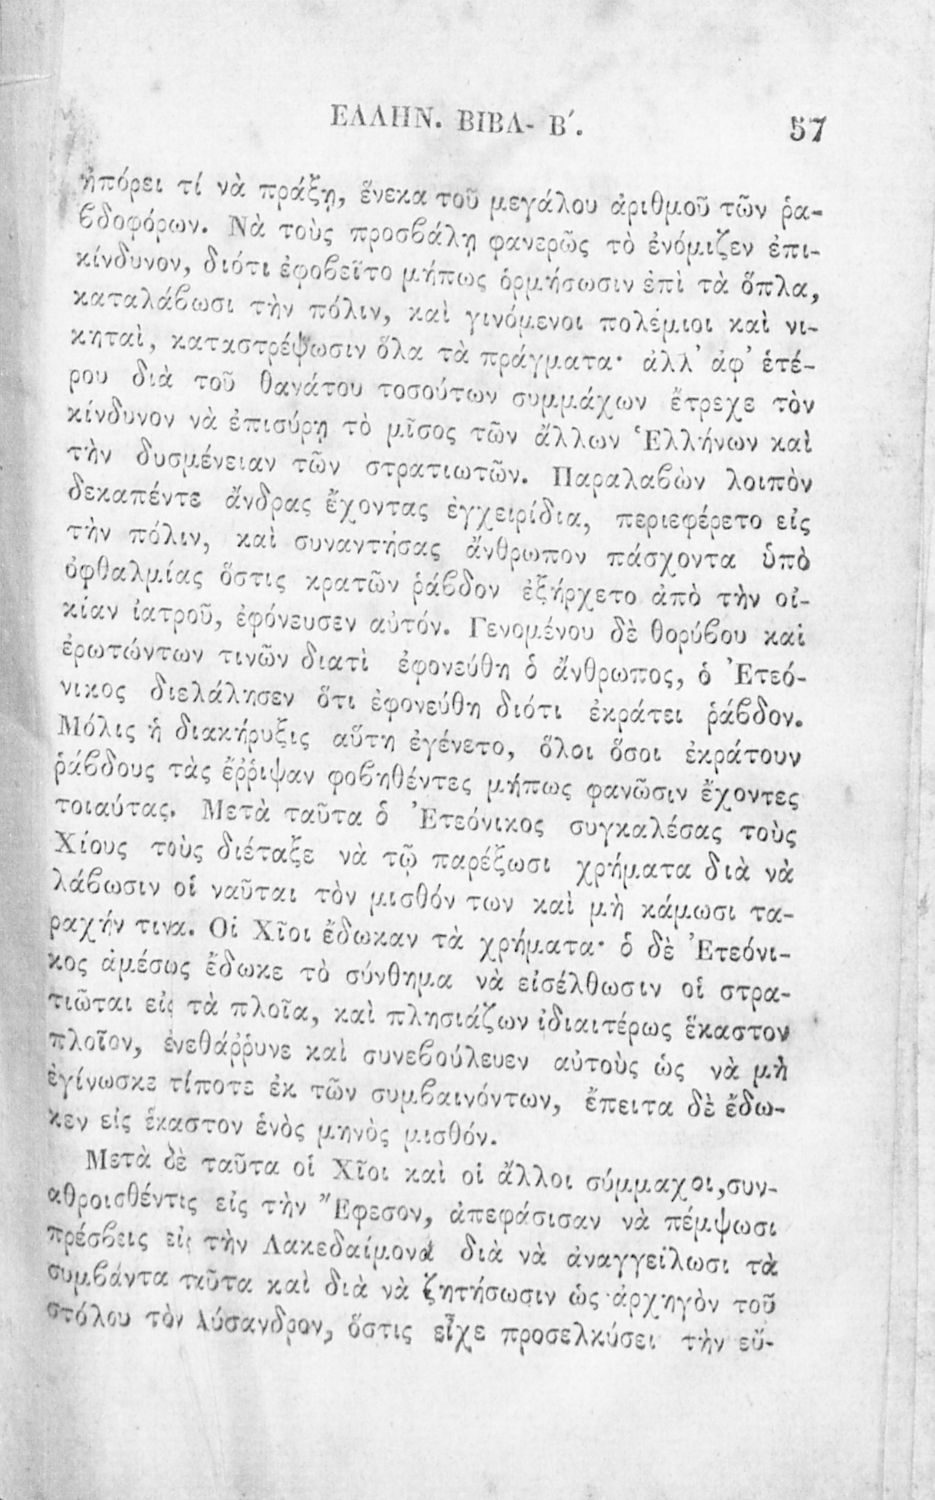 ΕΛΛΗΝ. ΒΙΒΛ- Β΄. 57
ἠπόρει τί νὰ πράξῃ, ἕνεκα τοῦ μεγάλου ἀριθμοῦ τῶν ῥα-
βδοφόρων. Νὰ τοὺς προσβάλῃ φανερῶς τὸ ἐνόμιζεν ἐπι-
κίνδυνον, διότι ἐφοβεῖτο μήπως ὁρμήσωσιν ἐπὶ τὰ ὅπλα,
καταλάβωσι τὴν πόλιν, καὶ γινόμενοι πολέμιοι καὶ νι-
κηταὶ, καταστρέψωσιν ὅλα τὰ πράγματα· ἀλλ' ἀφ' ἑτέ-
ρου διὰ τοῦ θανάτου τοσούτων συμμάχων ἔτρεχε τὸν
κίνδυνον νὰ ἐπισύρῃ τὸ μῖσος τῶν ἄλλων Ἑλλήνων καὶ
τὴν δυσμένειαν τῶν στρατιωτῶν. Παραλαβὼν λοιπὸν
δεκαπέντε ἄνδρας ἔχοντας ἐγχειρίδια, περιεφέρετο εἰς
τὴν πόλιν, καὶ συναντήσας ἄνθρωπον πάσχοντα ὑπὸ
ὀφθαλμίας ὅστις κρατῶν ῥάβδον ἐξήρχετο ἀπὸ τὴν οἰ-
κίαν ἰατροῦ, ἐφόνευσεν αὐτόν. Γενομένου δὲ θορύβου καὶ
ἐρωτώντων τινῶν διατὶ ἐφονεύθη ὁ ἄνθρωπος, ὁ Ἐτεό-
νικος διελάλησεν ὅτι ἐφονεύθη διότι ἐκράτει ῥάβδον.
Μόλις ἡ διακήρυξις αὕτη ἐγένετο, ὅλοι ὅσοι ἐκράτουν
ῥάβδους τὰς ἔῤῥιψαν φοβηθέντες μήπως φανῶσιν ἔχοντες
τοιαύτας. Μετὰ ταῦτα ὁ Ἐτεόνικος συγκαλέσας τοὺς
Χίους τοὺς διέταξε νὰ τῷ παρέξωσι χρήματα διὰ νὰ
λάβωσιν οἱ ναῦται τὸν μισθόν των καὶ μὴ κάμωσι τα-
ραχήν τινα. Οἱ Χῖοι ἔδωκαν τὰ χρήματα· ὁ δὲ Ἐτεόνι-
κος ἀμέσως ἔδωκε τὸ σύνθημα νὰ εἰσέλθωσιν οἱ στρα-
τιῶται εἰς τὰ πλοῖα, καὶ πλησιάζων ἰδιαιτέρως ἕκαστον
πλοῖον, ἐνεθάῤῥυνε καὶ συνεβούλευεν αὐτοὺς ὡς νὰ μὴ
ἐγίνωσκε τίποτε ἐκ τῶν συμβαινόντων, ἔπειτα δὲ ἔδω-
κεν εἰς ἕκαστον ἑνὸς μηνὸς μισθόν.
Μετὰ δὲ ταῦτα οἱ Χῖοι καὶ οἱ ἄλλοι σύμμαχοι,συν-
αθροισθέντες εἰς τὴν Ἔφεσον, ἀπεφάσισαν νὰ πέμψωσι
πρέσβεις εἰς τὴν Λακεδαίμονα διὰ νὰ ἀναγγείλωσι τὰ
συμβάντα ταῦτα καὶ διὰ νὰ ζητήσωσιν ὡς ἀρχηγὸν τοῦ
στόλου τὸν Λύσανδρον, ὅστις εἶχε προσελκύσει τὴν εὔ-